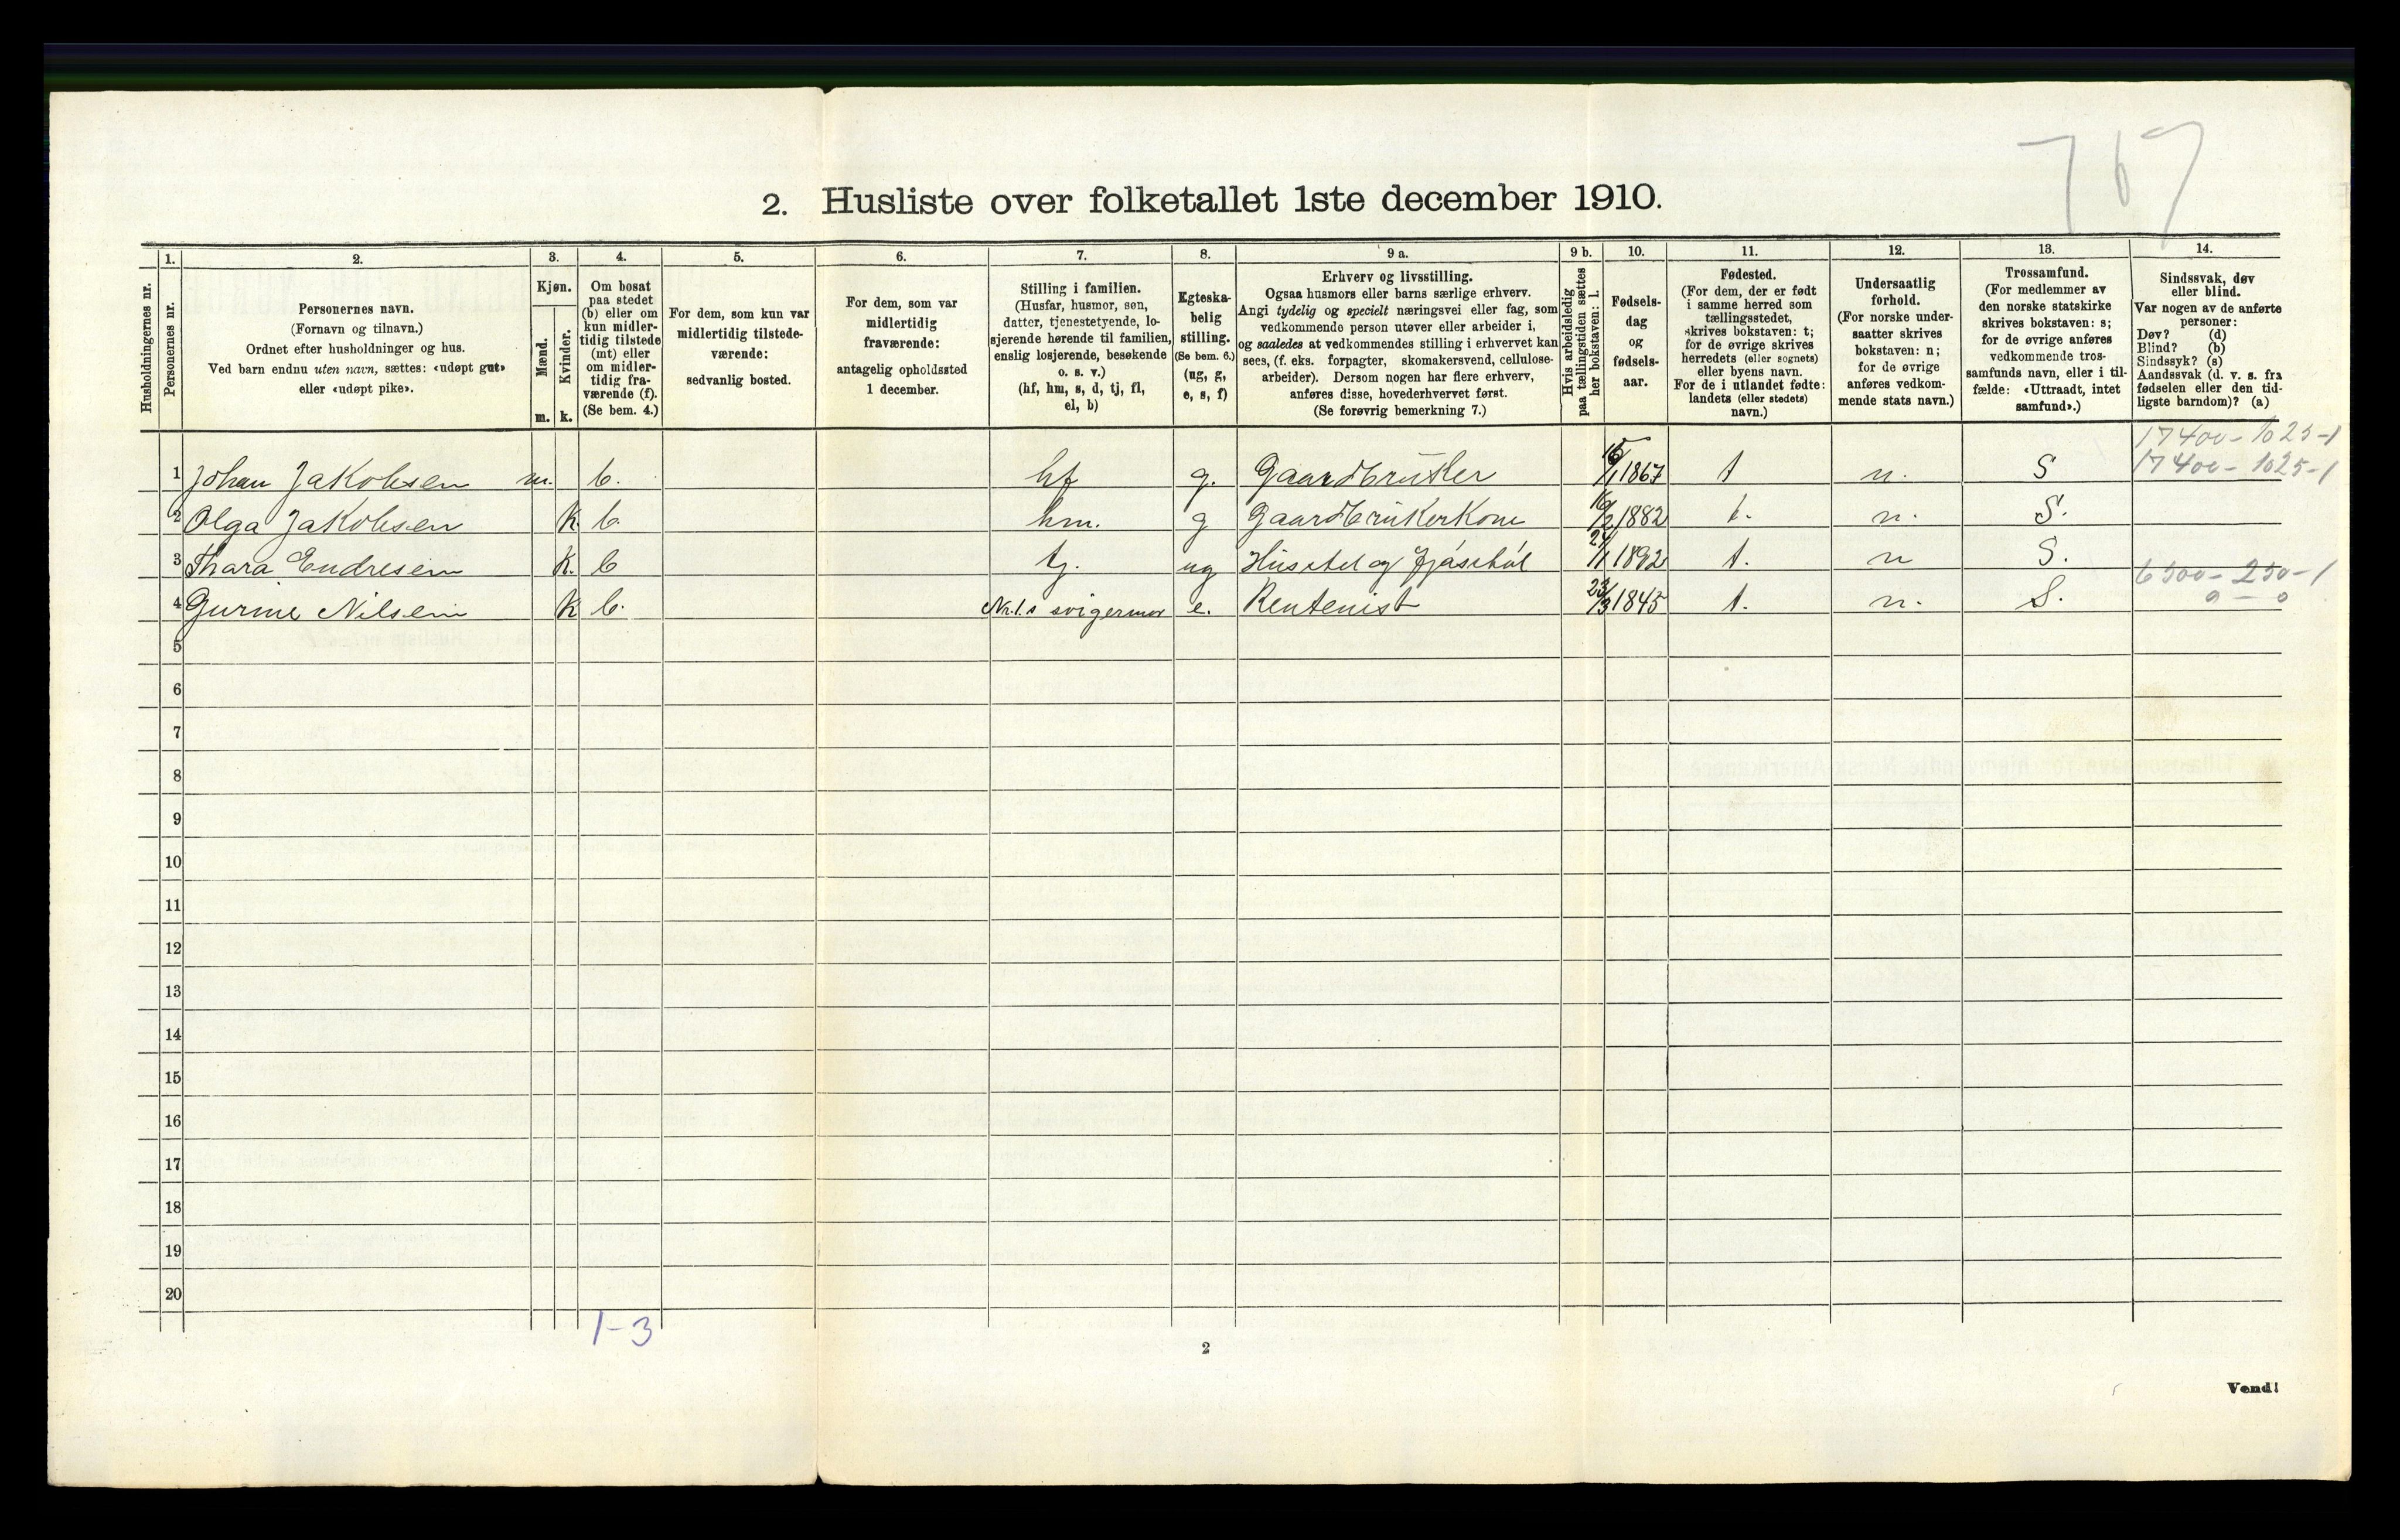 767
2. Husliste over folketallet 1ste december 1910.
Husholdningernes nr.
1. Personernes nr.
2. Personernes navn. (Fornavn og tilnavn.) Ordnet efter husholdninger og hus. Ved barn endnu uten navn, sættes: «udøpt gut» eller «udøpt pike».
3. Kjøn. Mænd. m. Kvinder. k.
4. Om bosat paa stedet (b) eller om kun midlertidig tilstede (mt) eller om midlertidig fraværende (f). (Se bem. 4.)
5. For dem, som kun var midlertidig tilstedeværende: sedvanlig bosted.
6. For dem, som var midlertidig fraværende: antagelig opholdssted 1 december.
7. Stilling i familien. (Husfar, husmor, søn, datter, tjenestetyende, losjerende hørende til familien, enslig losjerende, besøkende o. s. v.) (hf, hm, s, d, tj, fl, el, b)
8. Egteskabelig stilling. (Se bem. 6.) (ug, g, e, s, f)
9 a. Erhverv og livsstilling. Ogsaa husmors eller barns særlige erhverv. Angi tydelig og specielt næringsvei eller fag, som vedkommende person utøver eller arbeider i, og saaledes at vedkommendes stilling i erhvervet kan sees, (f. eks. forpagter, skomakersvend, cellulosearbeider). Dersom nogen har flere erhverv, anføres disse, hovederhvervet først. (Se forøvrig bemerkning 7.)
9 b. Hvis arbeidsledig paa tællingstiden sættes her bokstaven: l.
10. Fødselsdag og fødselsaar.
11. Fødested. (For dem, der er født i samme herred som tællingsstedet, skrives bokstaven: t; for de øvrige skrives herredets (eller sognets) eller byens navn. For de i utlandet fødte: landets (eller stedets) navn.)
12. Undersaatlig forhold. (For norske undersaatter skrives bokstaven: n; for de øvrige anføres vedkommende stats navn.)
13. Trossamfund. (For medlemmer av den norske statskirke skrives bokstaven: s; for de øvrige anføres vedkommende trossamfunds navn, eller i tilfælde: «Uttraadt, intet samfund».)
14. Sindssvak, døv eller blind. Var nogen av de anførte personer: Døv? (d) Blind? (b) Sindssyk? (s) Aandssvak (d. v. s. fra fødselen eller den tidligste barndom)? (a)
17400 - 1025 - 1
1 Johan Jakobsen m. b. hf g. Gaardbruker 15/1 1867 t n. S 17400 - 1025 - 1
2 Olga Jakobsen k. b. hm. g Gaardbrukerkone 16/2 1882 t. n. S.
3 Thara Endresen k. b tj. ug Husstel og fjøsstel 24/11 1892 t. n S.
6500 - 250 - 1
4 Gurine Nilsen k b. Nr. 1.s svigermor e. Rentenist 23/3 1845 t. n. S. 0 - 0
5
6
7
8
9
10
11
12
13
14
15
16
17
18
19
20
1-3
2
Vend!